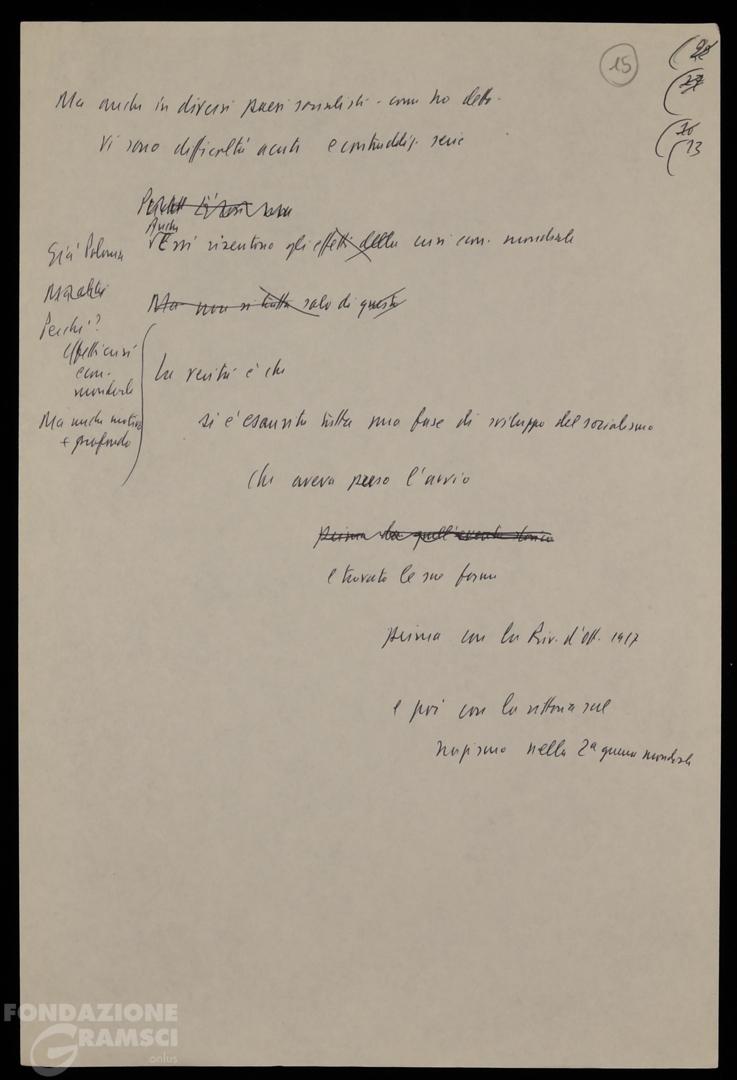 15
13
Ma anche in diversi paesi socialisti - come ho detto -
Vi sono difficoltà acute e contraddiz. serie
Anche
Essi risentono gli effetti della crisi econ. mondiale
Già Polonia
Ma non si tratta solo di questo
Perché?
Effetti crisi
econ.
mondiale
Ma anche motivo
+ profondo
La verità è che
si è esaurita tutta una fase di sviluppo del socialismo
che aveva preso l'avvio
e trovato le sue forme
prima con la Riv. d'Ott. 1917
e poi con la vittoria sul
nazismo nella 2ª guerra mondiale
FONDAZIONE
GRAMSCI
onlus